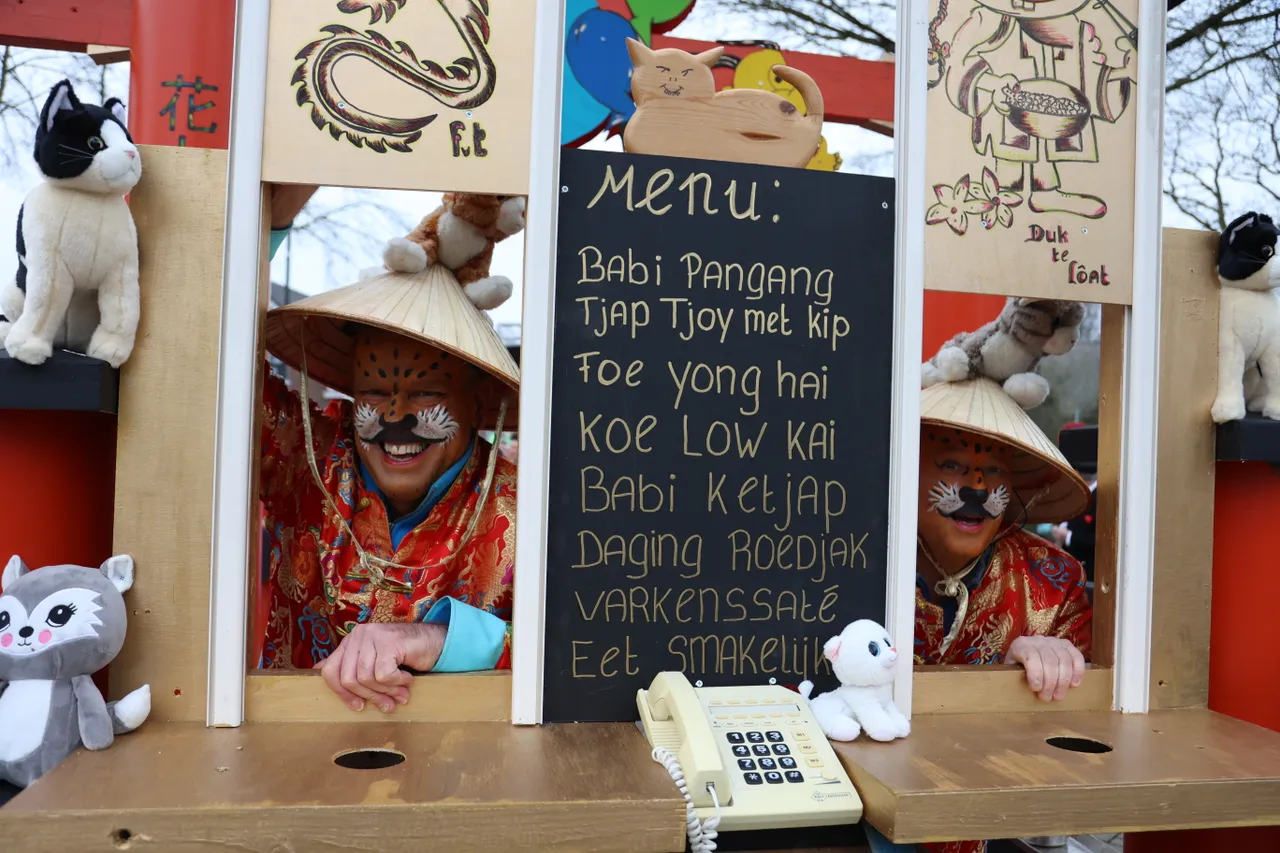 花
F.t
Menu:
Babi Pangang
Tjap Tjoy met kip
Foe yong hai
Koe Low Kai
Babi Ketjap
Daging Roedjak
Varkenssaté
Eet smakelijk
Duk
te
lôat
1 2 3
4 5 6
7 8 9
* 0 #